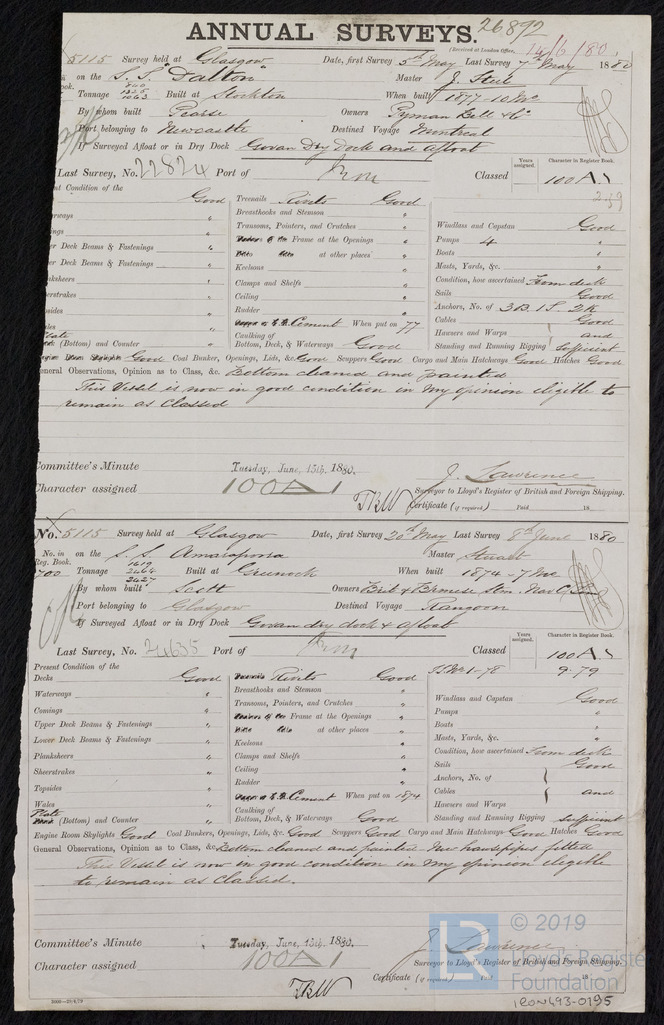 ANNUAL SURVEYS. 26892
(Received at London Office, 14/6/80.
5115 Survey held at Glasgow Date, first Survey 5th May Last Survey 7th May 1880
on the S.S. "Dalton" Master J. Steel
Tonnage 1063 Built at Stockton When built 1877-10 Mo
By whom built Pearse Owners Pyman Bell & Co
Port belonging to Newcastle Destined Voyage Montreal
If Surveyed Afloat or in Dry Dock Govan Dry Dock and afloat
Years assigned. Character in Register Book.
Last Survey, No. 22824 Port of Classed 100 A 1
ent Condition of the
Good Treenails Rivets Good
Breasthooks and Stemson "
erways " Transoms, Pointers, and Crutches " Windlass and Capstan Good
ings " Frame at the Openings " Pumps 4 "
er Deck Beams & Fastenings " at other places " Boats "
er Deck Beams & Fastenings " Keelsons " Masts, Yards, &c. "
nksheers " Clamps and Shelfs " Condition, how ascertained From deck
erstrakes " Ceiling " Sails Good
sides " Rudder " Anchors, No. of 3B. 1S. 2K
ales " Cement When put on 77 Cables Good
Plate (Bottom) and Counter " Caulking of Bottom, Deck, & Waterways Good Hawsers and Warps and
Standing and Running Rigging Sufficient
Good Coal Bunker, Openings, Lids, &c. Good Scuppers Good Cargo and Main Hatchways Good Hatches Good
eneral Observations, Opinion as to Class, &c. Bottom cleaned and painted
This Vessel is now in good condition in my opinion eligible to
remain as Classed
Committee's Minute Tuesday, June, 15th, 1880.
Character assigned 100 A 1
J. Lawrence
Surveyor to Lloyd's Register of British and Foreign Shipping.
TBW Certificate (if required) Paid 18
No. 5115 Survey held at Glasgow Date, first Survey 20th May Last Survey 8th June 1880
No. in Reg. Book. on the S.S. Amarapoora Master Stuart
700 Tonnage 2427 Built at Greenock When built 1874-7 Mo
By whom built Scott Owners Brit & Burmese Stm. Nav C
Port belonging to Glasgow Destined Voyage Rangoon
If Surveyed Afloat or in Dry Dock Govan dry dock & afloat
Years assigned. Character in Register Book.
Last Survey, No. 24635 Port of Classed 100 A 1
Present Condition of the S.S. No 1-78 9.79
Decks Good Rivets Good
Waterways " Breasthooks and Stemson " Windlass and Capstan Good
Comings " Transoms, Pointers, and Crutches " Pumps "
Upper Deck Beams & Fastenings " Frame at the Openings " Boats "
Lower Deck Beams & Fastenings " at other places " Masts, Yards, &c. "
Planksheers " Keelsons " Condition, how ascertained From deck
Sheerstrakes " Clamps and Shelfs " Sails Good
Topsides " Ceiling " Anchors, No. of
Wales " Rudder " Cables and
Cement When put on 1874 Hawsers and Warps
Plate (Bottom) and Counter " Caulking of Bottom, Deck, & Waterways Good Standing and Running Rigging sufficient
Engine Room Skylights Good Coal Bunkers, Openings, Lids, &c. Good Scuppers Good Cargo and Main Hatchways Good Hatches Good
General Observations, Opinion as to Class, &c. Bottom cleaned and painted New hawsepipes fitted
This Vessel is now in good condition in my opinion eligible
to remain as Classed.
Committee's Minute Tuesday, June, 15th, 1880.
Character assigned 100 A 1
J. Lawrence
Surveyor to Lloyd's Register of British and Foreign Shipping.
Certificate (if required) 18
TBW
LR © 2019
Lloyd's Register
Foundation
IRON493-0195